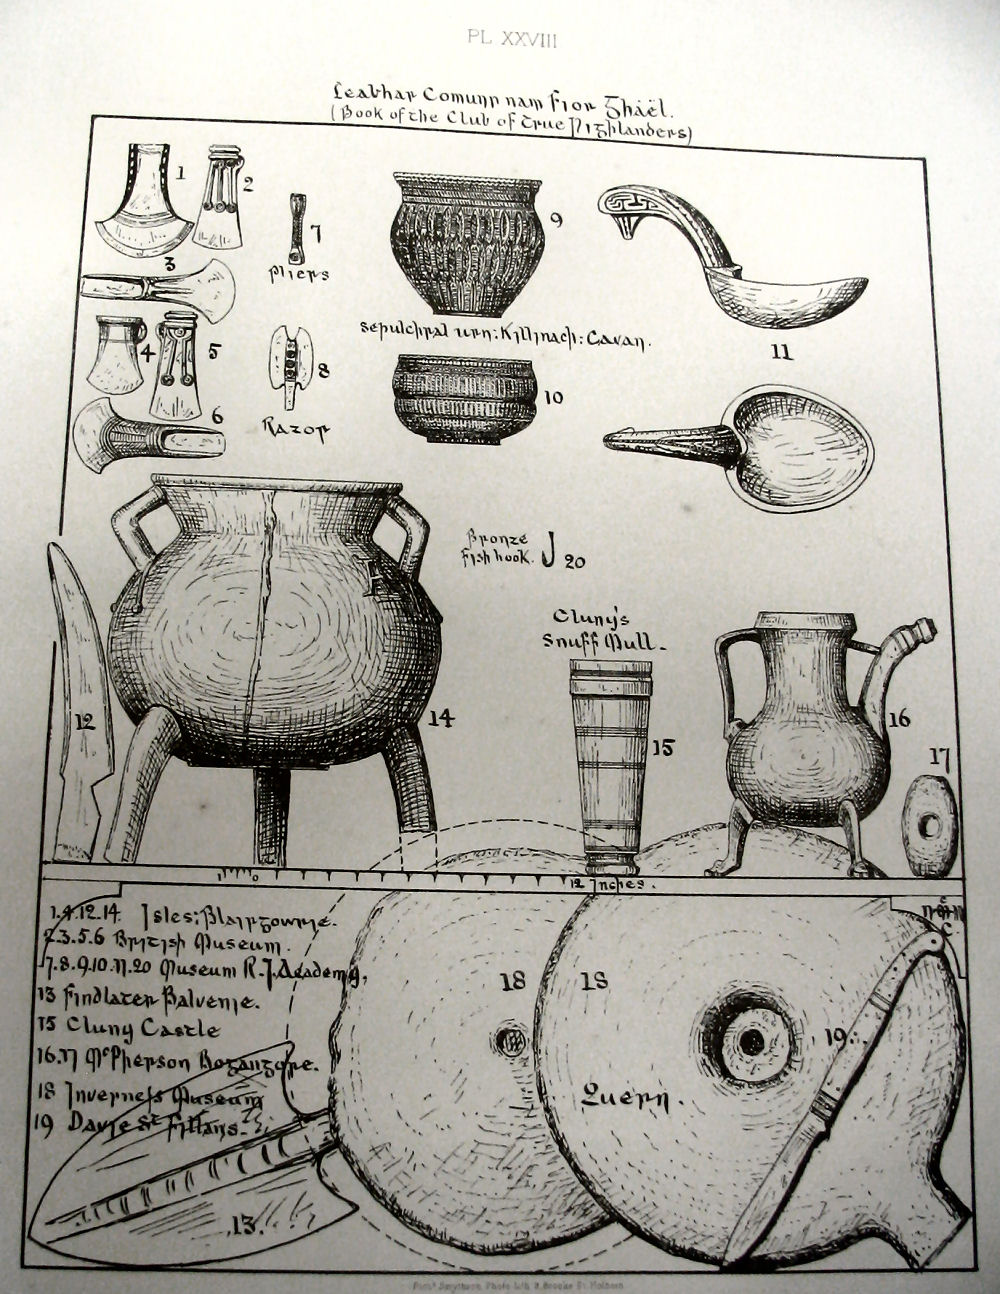 PL XXVIII
Leabhar Comunn nam Fior Ghäël.
(Book of the Club of True Highlanders)
1
2
3
4
5
6
7
Pliers
8
Razor
9
Sepulchral urn: Killinach: Cavan.
10
11
Bronze
Fish hook. 20
12
14
Cluny's
Snuff Mull.
15
16
17
12 Inches.
1.4.12.14. Isles: Blairgowrie.
2.3.5.6 British Museum.
7.8.9.10.11.20 Museum R.I. Academy,
13 Findlater Balvenie.
15 Cluny Castle
16.17 McPherson Bogangore.
18 Inverness Museum
19 Davie St. Fillans.
13.
18
18
Quern.
19.